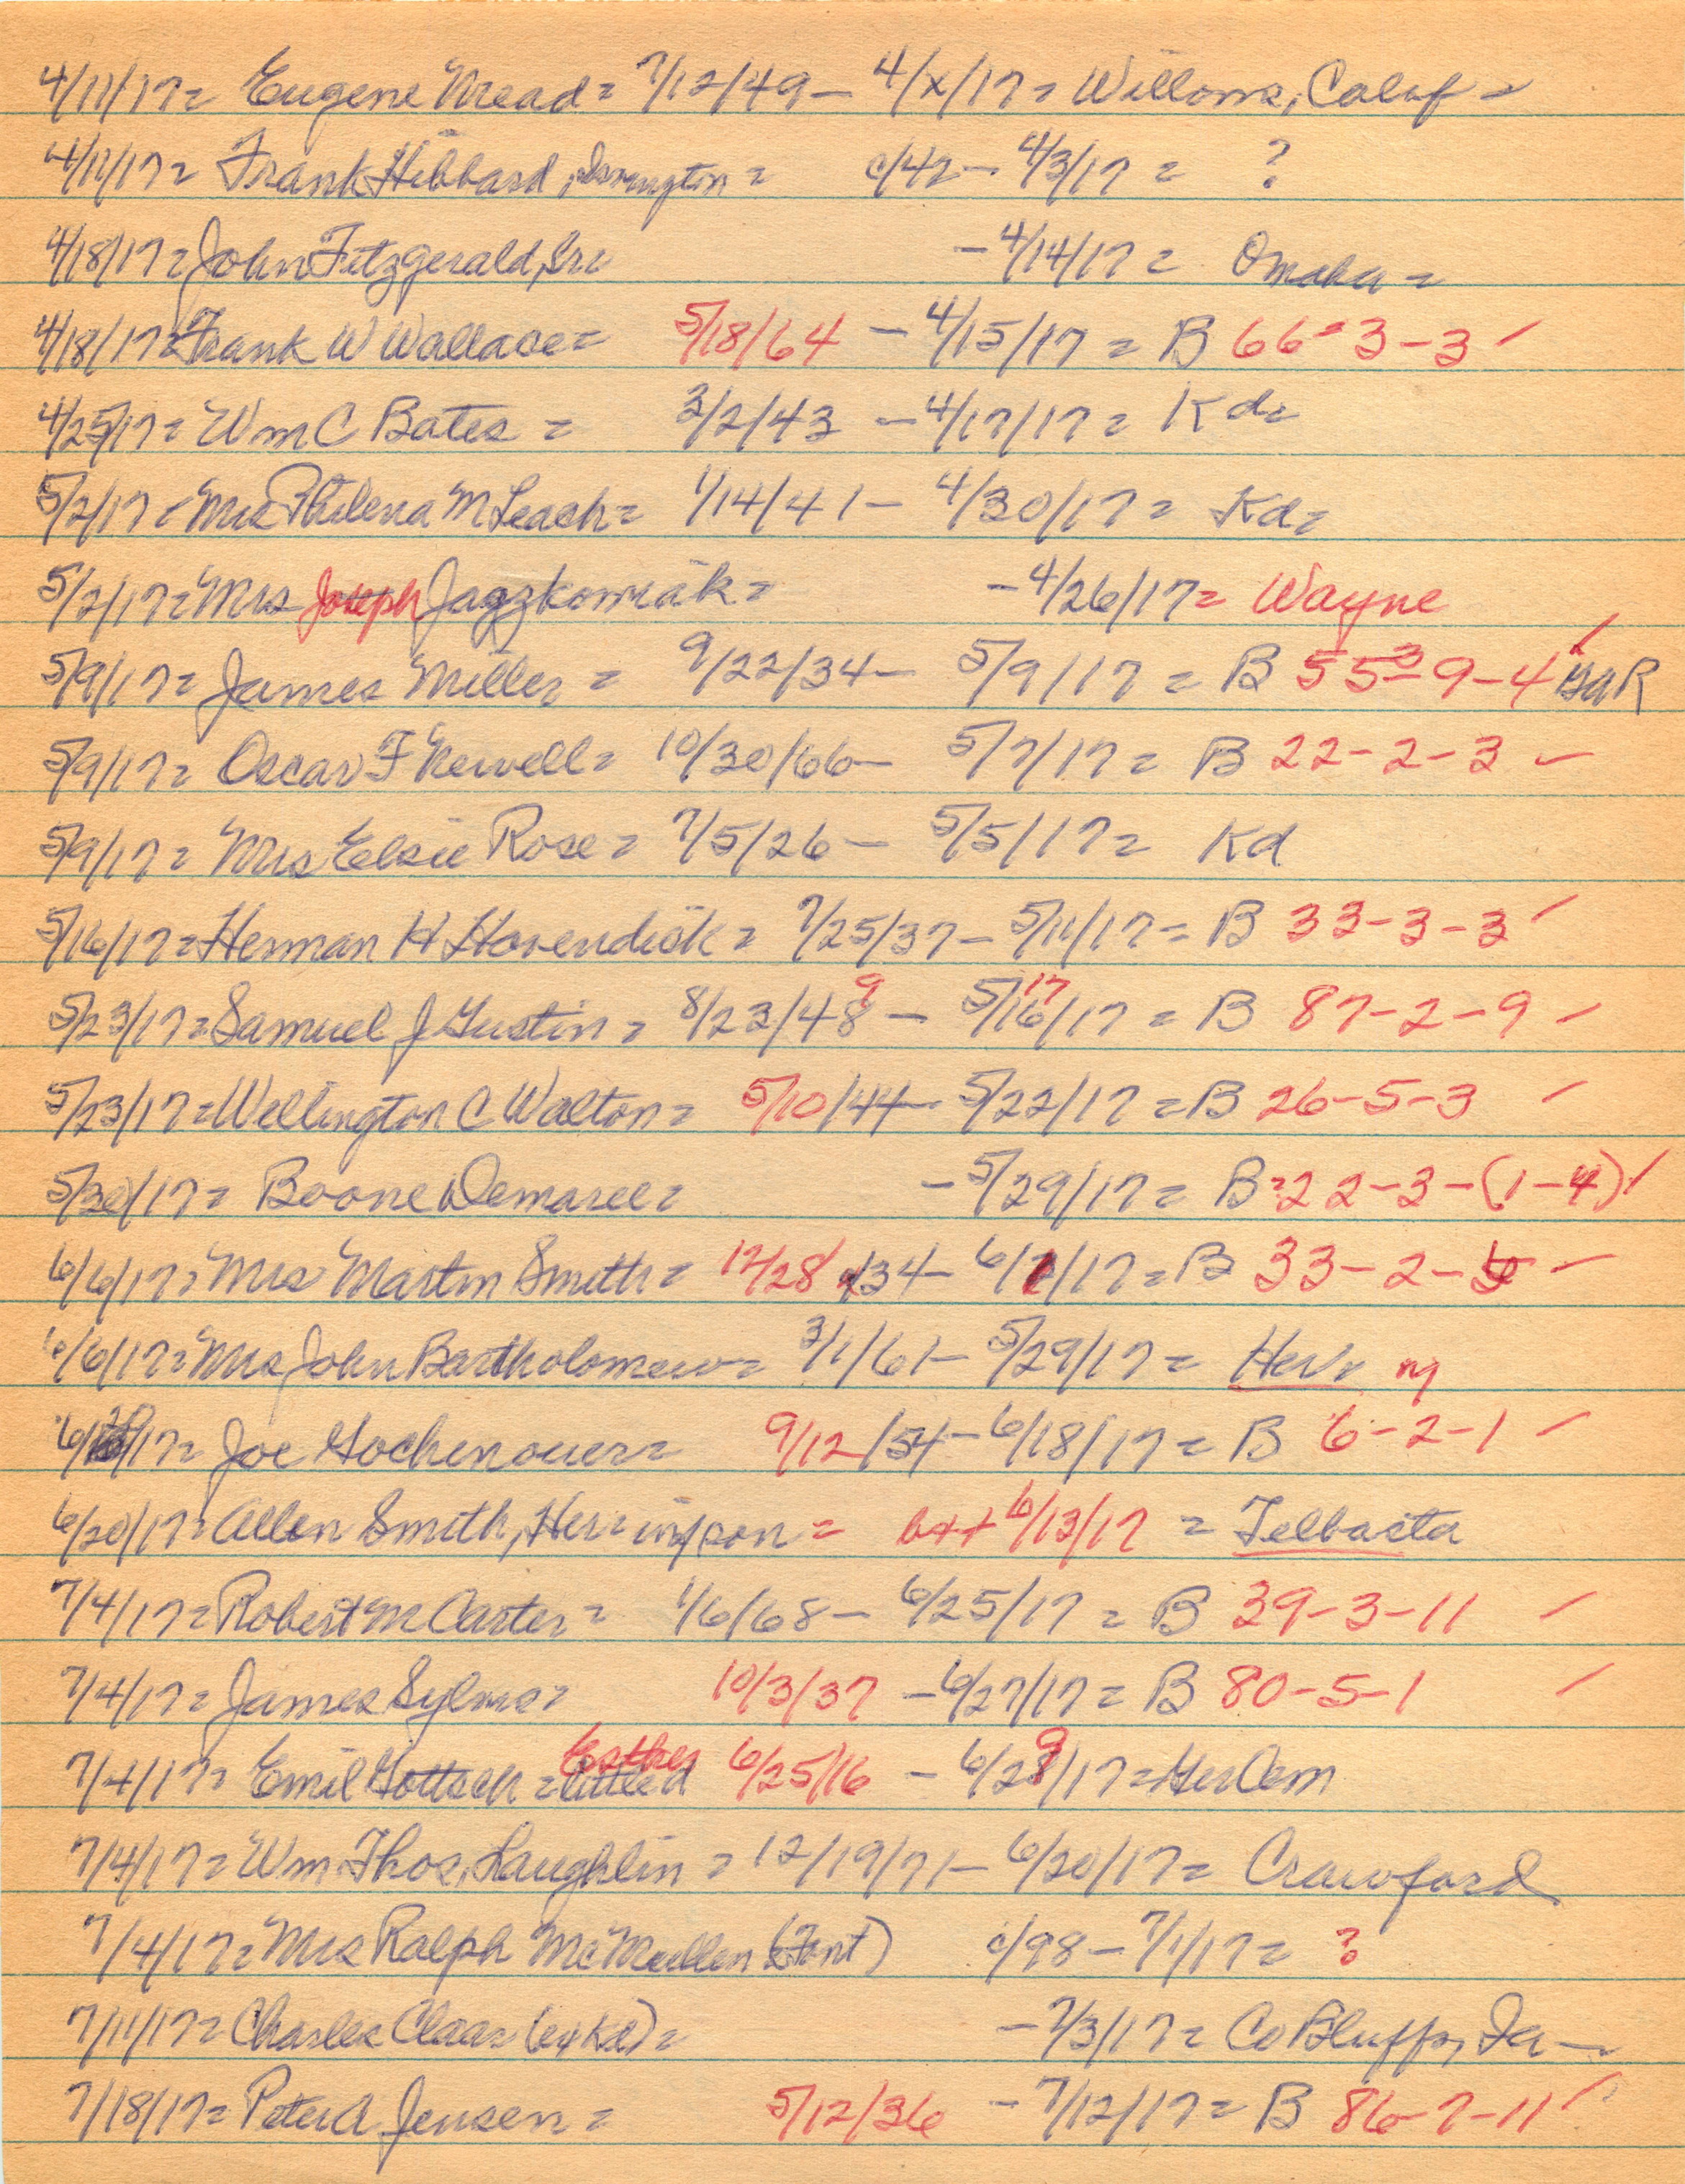 4/11/17= Eugene Mead= 7/12/49- 4/x/17= Willows, Calif -
4/11/17= Frank Hibbard, = c/42- 4/3/17 = ?
4/18/17= John Fitzgerald, Sr. -4/14/17= Omaha =
4/18/17= Frank W Wallace= 5/18/64 - 4/15/17= B 66-3-3 ✓
4/25/17= Wm C Bates = 3/2/43 -4/17/17= Kd=
5/2/17= Mrs Philena M Leach= 1/14/41- 4/30/17= Kd=
5/2/17= Mrs Joseph -4/26/17= Wayne
5/9/17= James Miller = 9/22/34- 5/9/17= B 55 3 9-4 ✓ GAR
5/9/17= Oscar F Newell= 10/30/66- 5/7/17= B 22-2-3 ✓
5/9/17= Mrs Elsie Rose= 7/5/26- 5/5/17= Kd
5/16/17= Herman H Hovendick= 7/25/37- 5/11/17= B 33-3-3 ✓
5/23/17= Samuel J Gustin= 8/23/48 9 - 5/16 17 /17= B 87-2-9 ✓
5/23/17= Wellington C Walton= 5/10/44- 5/22/17= B 26-5-3 ✓
5/30/17= Boone Demaree= -5/29/17= B=22-3-(1-4) ✓
6/6/17= Mrs Martin Smith= 12/28/34- 6/1/17= B 33-2- ✓
6/6/17= Mrs John Bartholomew= 3/1/61- 5/29/17= Her=
/17= Joe Gochenouer= 9/12/54- 6/18/17= B 6-2-1 ✓
6/20/17= Allen Smith, Her= = 6/13/17 = Telbasta
7/4/17= Robert M Carter= 1/6/68- 6/25/17= B 39-3-11 ✓
7/4/17= James Sylms= 10/3/37 -6/27/17= B 80-5-1 ✓
7/4/17= Emil Gottsch = Esther 6/25/16 - 6/28 9 /17= Her Cem
7/4/17= Wm. Thos. Laughlin = 12/19/71- 6/20/17= Crawford
7/4/17= Mrs Ralph McMullen (Font) c/98- 7/1/17= ?
7/11/17= Charles Claar (ex Kd)= -7/3/17= Co Bluffs, Ia -
7/18/17= Peter A Jensen= 5/12/36 -7/12/17= B 86-7-11 ✓